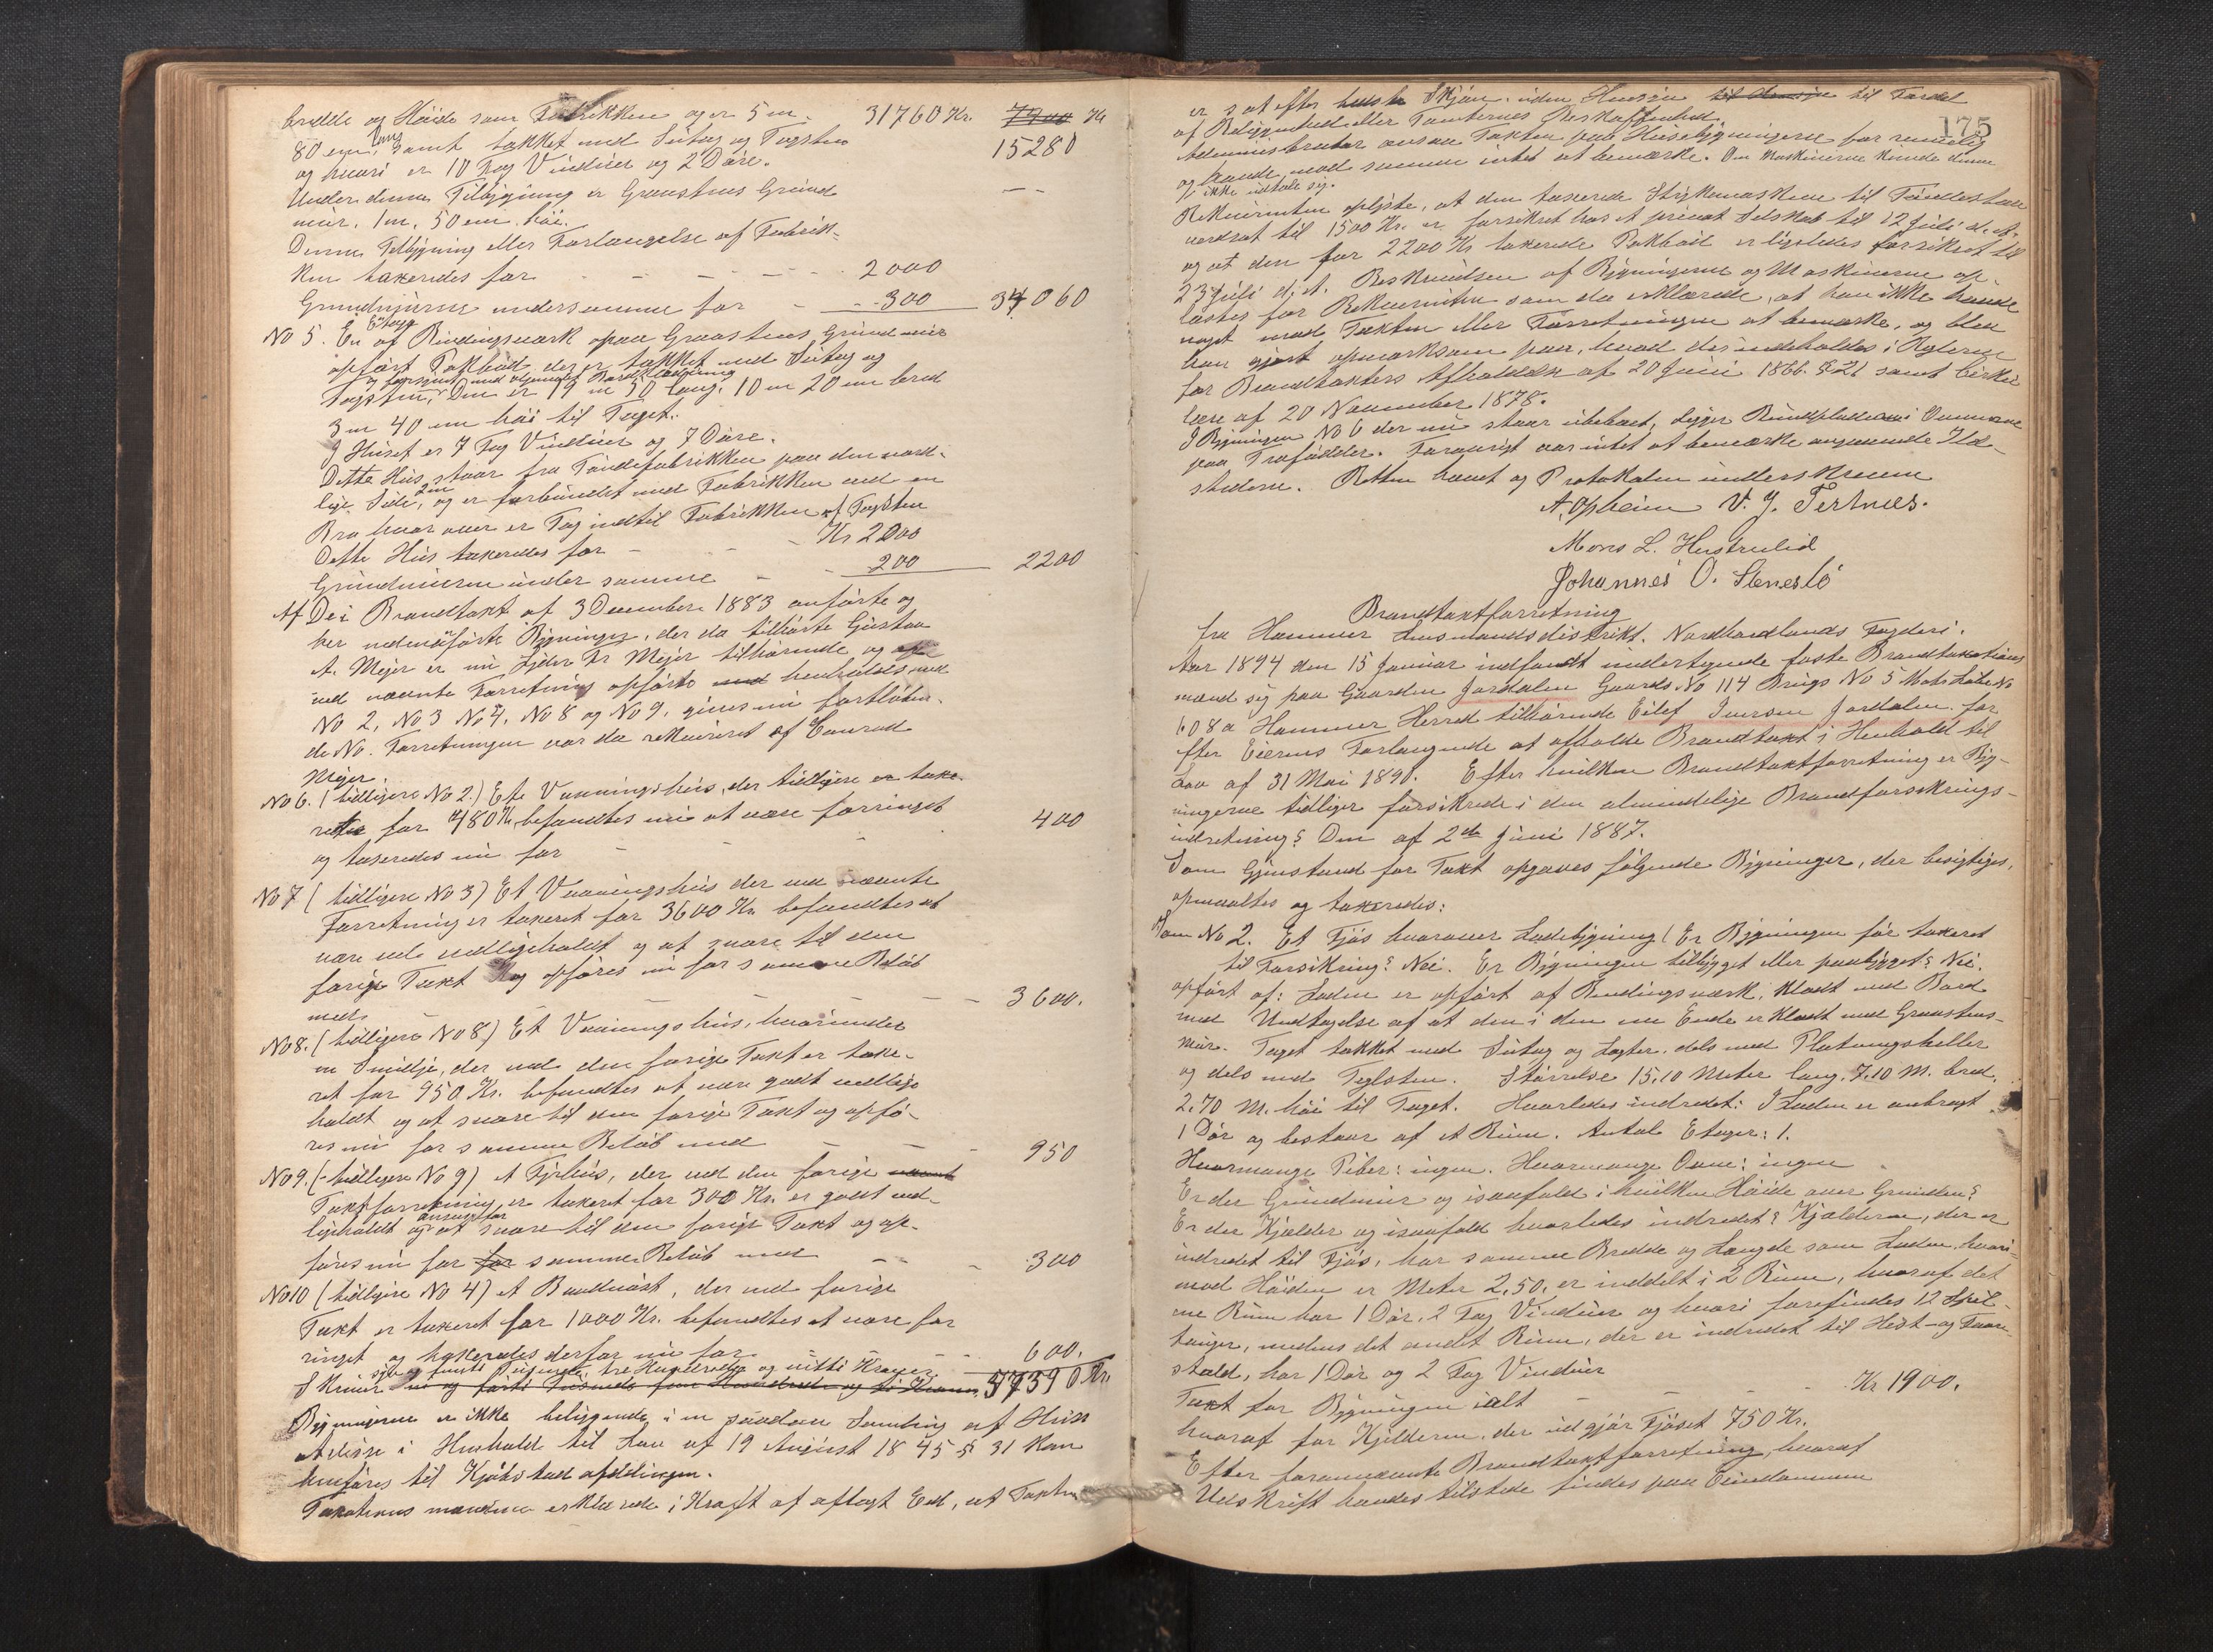 bredde og Høide som Fabrikken og er 5 m. 31760 Kr. 7900 Kr
80 cm. lang samt takket med Sutag og Tagsten 15280
og hvori er 10 Fag Vinduer og 2 Døre.
Under denne Tilbygning er Graastens Grund
mur. 1 m. 50 cm. høi.
Denne Tilbygning eller Forlængelse af Fabrik-
ken taxeredes for - - - - 2000
Grundmurene undersamme for - - 300 34060
No 5. En Etages af Bindingsværk opaa Graastens Grundmur
opført Pakbod, der er takket med Sutag og
Tagsten, og forsynet med udvendig Bordklædning Den er 19 m 50 lang. 10 m 20 cm bred
3 m 40 cm høi til Taget.
I Huset er 7 Fag Vinduer og 7 Døre.
Dette Hus staar fra Tøndefabrikken paa den nord-
lige Side, 2 m og er forbundet med Fabrikken med en
Bro hvor over er Tag indtil Fabrikken af Tagsten
Dette Hus taxeredes for - - - Kr 2000
Grundmuren under samme - - 200 2200
Af De i Brandtaxt af 3 December 1883 anførte og
her nedenanførte Bygninger, der da tilhørte Gustav
A. Mejer er nu Ejder Fr Mejer tilhørende og
ved nævnte Forretning opførte med henholdsvis
No 2, No 3 No 4, No 8 og No 9, gives nu fortløben-
de No. Forretningen var da rekvireret af Conrad
Mejer.
No 6. (tidligere No 2.) Et Vaaningshus, der tidligere er taxe-
ret for 480 Kr, befandtes nu at være forringet
og taxeredes nu for - - - 400
No 7 (tidligere No 3) Et Vaaningshus der ved nævnte
Forretning er taxeret for 3600 Kr befandtes at
være vel vedligeholdt og at svare til den
forige Taxt og opføres nu for samme Beløb
med - - - - 3600.
No 8. (tidligere No 8.) Et Vaaningshus, hvorunder
en Smidje, der ved den forige Taxt er taxe-
ret for 950 Kr. befandtes at være godt vedlige
holdt og at svare til den forige Taxt og opfø-
res nu for samme Beløb med - - 950
No 9. (tidligere No 9) et Fyrhus, der ved den forige
Taxtforretning er taxeret for 300 Kr. er godt ved-
ligeholdt og ansees for at svare til den forige Taxt og op-
føres nu for for samme Beløb med - - 300
No 10 (tidligere No 4) et Baadnøst, der ved forige
Taxt er taxeret for 1000 Kr. befandtes at være for
ringet og taxeredes derfor nu for - - 600.
Skriver syv og femti Tusinde tre Hundrede og nitti Kroner 57390 Kr.
Bygningerne er ikke beliggende i en saadan Samling af Hus
at disse i Henhold til Lov af 19 August 1845 § 31 kan
henføres til Kjøbstadafdelingen.
Taxationsmændene erklærede i Kraft af aflagt Eed, at Taxten
175
er sat efter bedste Skjøn. uden Hensyn til Fordel
af Beliggenhed eller Tomternes Beskaffenhed.
Administrator ansaa Taxten paa Husebygningerne for rimelig
og havde mod samme intet at bemærke. Om Maskinerne kunde denne
ikke udtale sig.
Rekvirenten oplyste, at den taxerede Stykemaskine til Tøndestav
værdsat til 1500 Kr. er forsikret hos et privat Selskab til 12 Juli d. A.
og at den for 2200 Kr taxerede Pakbod er ligeledes forsikret til
23 Juli d. A. Beskrivelsen af Bygningerne og Maskinerne op-
læstes for Rekvirenten som da erklærede, at han ikke havde
noget mod Taxten eller Forretningen at bemærke, og blev
han gjort opmærksom paa, hvad der indeholdes i Reglerne
for Brandtaxters Afholdelse af 20 Juni 1866. § 21 samt Cirku
lære af 20 November 1878.
I Bygningen No 6 der nu staar ubeboet, ligger Bundpladerne i Ovnene
paa Træfødder. Forøvrigt var intet at bemærke angaaende Ild-
stederne. Retten hævet og Protokolen underskreven
A. Opheim V. J. Tertnæs.
Mons L. Hustrulid
Johannes O. Stenestø
Brandtaxtforretning
fra Hammer Lensmandsdistrikt. Nordhordlands Fogderi.
Aar 1894 den 15 Januar indfandt undertegnede faste Brandtaxations
mænd sig paa Gaarden Jordalen Gaards No 114 Brugs No 5 Matr. Løbe No
608a Hammer Herred tilhørende Eilef Iverson Jordalen. for
efter Eierens Forlangende at afholde Brandtaxt i Henhold til
Lov af 31 Mai 1890. Efter hvilken Brandtaxtforretning er Byg-
ningerne tidliger forsikrede i den almindelige Brandforsikrings-
indretning? Den af 2de Juni 1887.
Som Gjenstand for Taxt opgaves følgende Bygninger, der besigtiges,
opmaaltes og taxeredes:
Som No 2. Et Fjøs hvorover Ladebygning (Er Bygningen før taxeret
til Forsikring? Nei. Er Bygningen tilbygget eller paabygget? Nei.
opført af: Laden er opført af Bindingsværk, klædt med Bord
med Undtagelse af at den i den ene Ende er klædt med Graastens-
mur. Taget takket med Sutag og Lægter. dels med Platningsheller
og dels med Teglsten. Størrelse 15,10 Meter lang. 7,10 M. bred.
2,70 M. høi til Taget. Hvorledes indredet: I Laden er anbragt
1 Dør og bestaar af et Rum. Antal Etager: 1.
Hvormange Piber: ingen. Hvormange Ovne: ingen
Er der Grundmur og isaafald i hvilken Høide over Grunden?
Er der Kjælder og isaafald hvorledes indredet? Kjælderen, der er
indredet til Fjøs, har samme Bredde og Længde som Laden, hvori-
mod Høiden er Meter 2,50, er inddelt i 2 Rum, hvoraf det
ene Rum har 1 Dør. 2 Fag Vinduer og hvori forefindes 12 Spil-
tauger, medens det andet Rum, der er indredet til Hest- og
stald, har 1 Dør og 2 Fag Vinduer
Taxt for Bygningen ialt - - - - Kr 1900.
hvoraf for Kjelderen, der udgjør Fjøset 750 Kr.
Efter forannævnte Brandtaxtforretning, hvoraf
Udskrift havdes tilstede findes paa Eiendommen